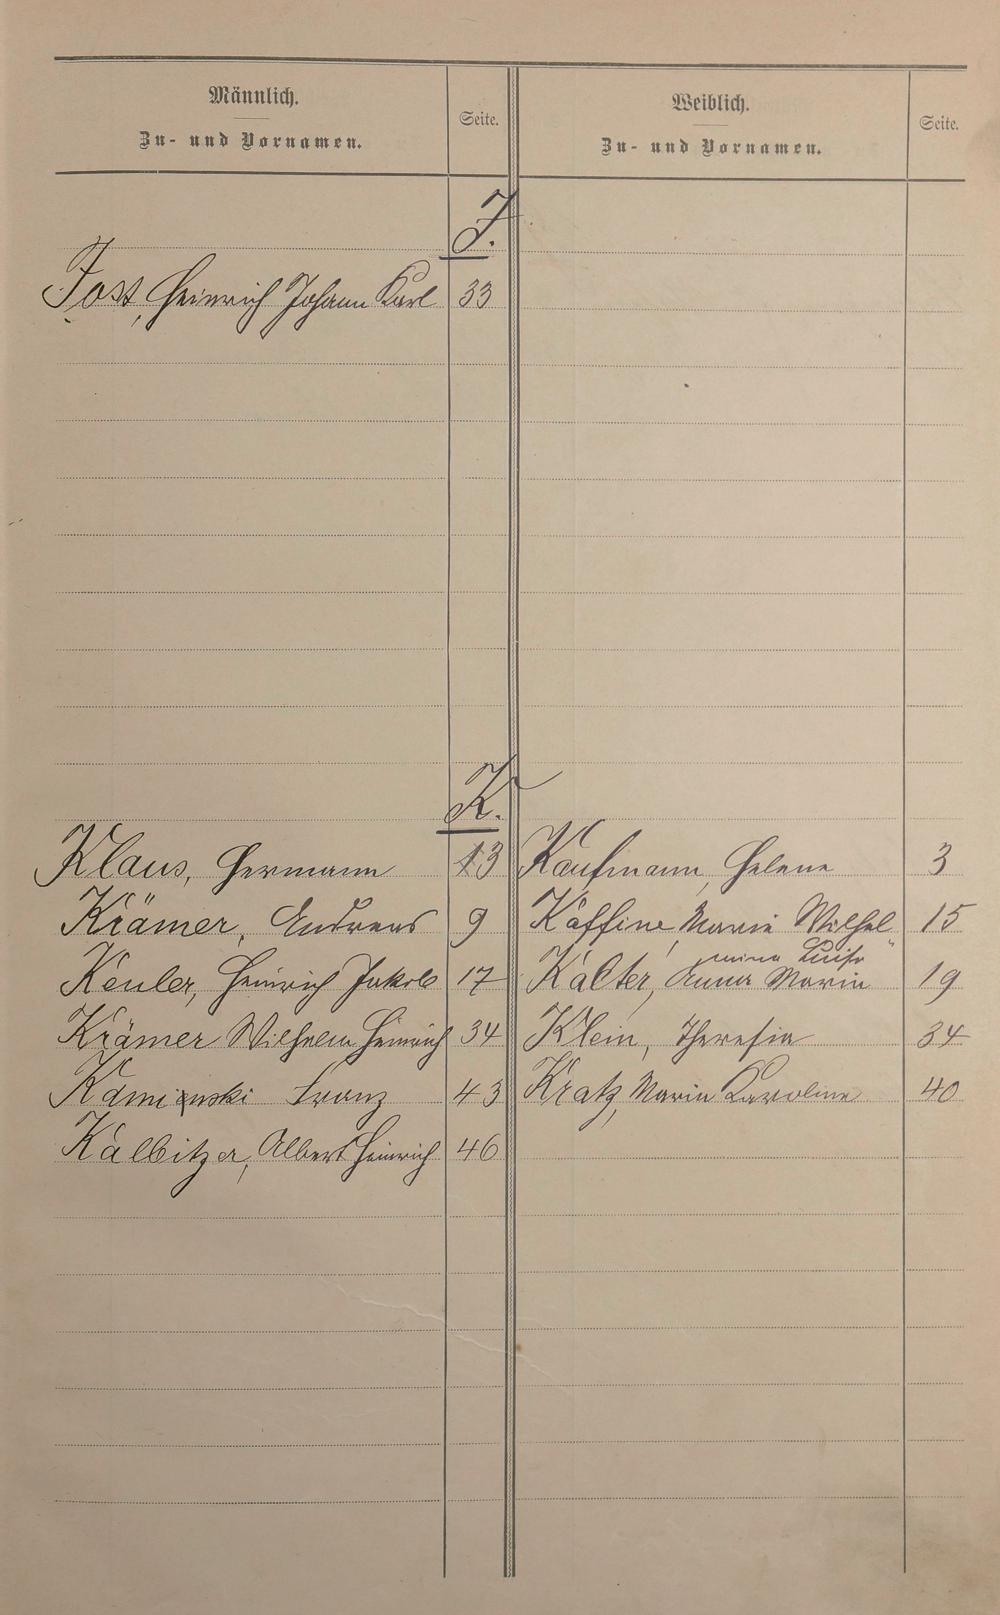 Männlich.
Zu- und Vornamen.
Seite.
Weiblich.
Zu- und Vornamen.
Seite.
J.
Jost, Heinrich Johann Karl 33
K.
Klaus, Hermann 13 Kaufmann, Helene 3
Krämer, Andreas 9 Kaffine, Marie Wilhel 15
mina Luise
Keuler, Heinrich Jakob 17 Kalter, Anna Maria 19
Krämer Wilhelm Heinrich 34 Klein, Theresia 34
Kaminski Franz 43 Kratz, Maria Karoline 40
Kalbitzer, Albert Heinrich 46